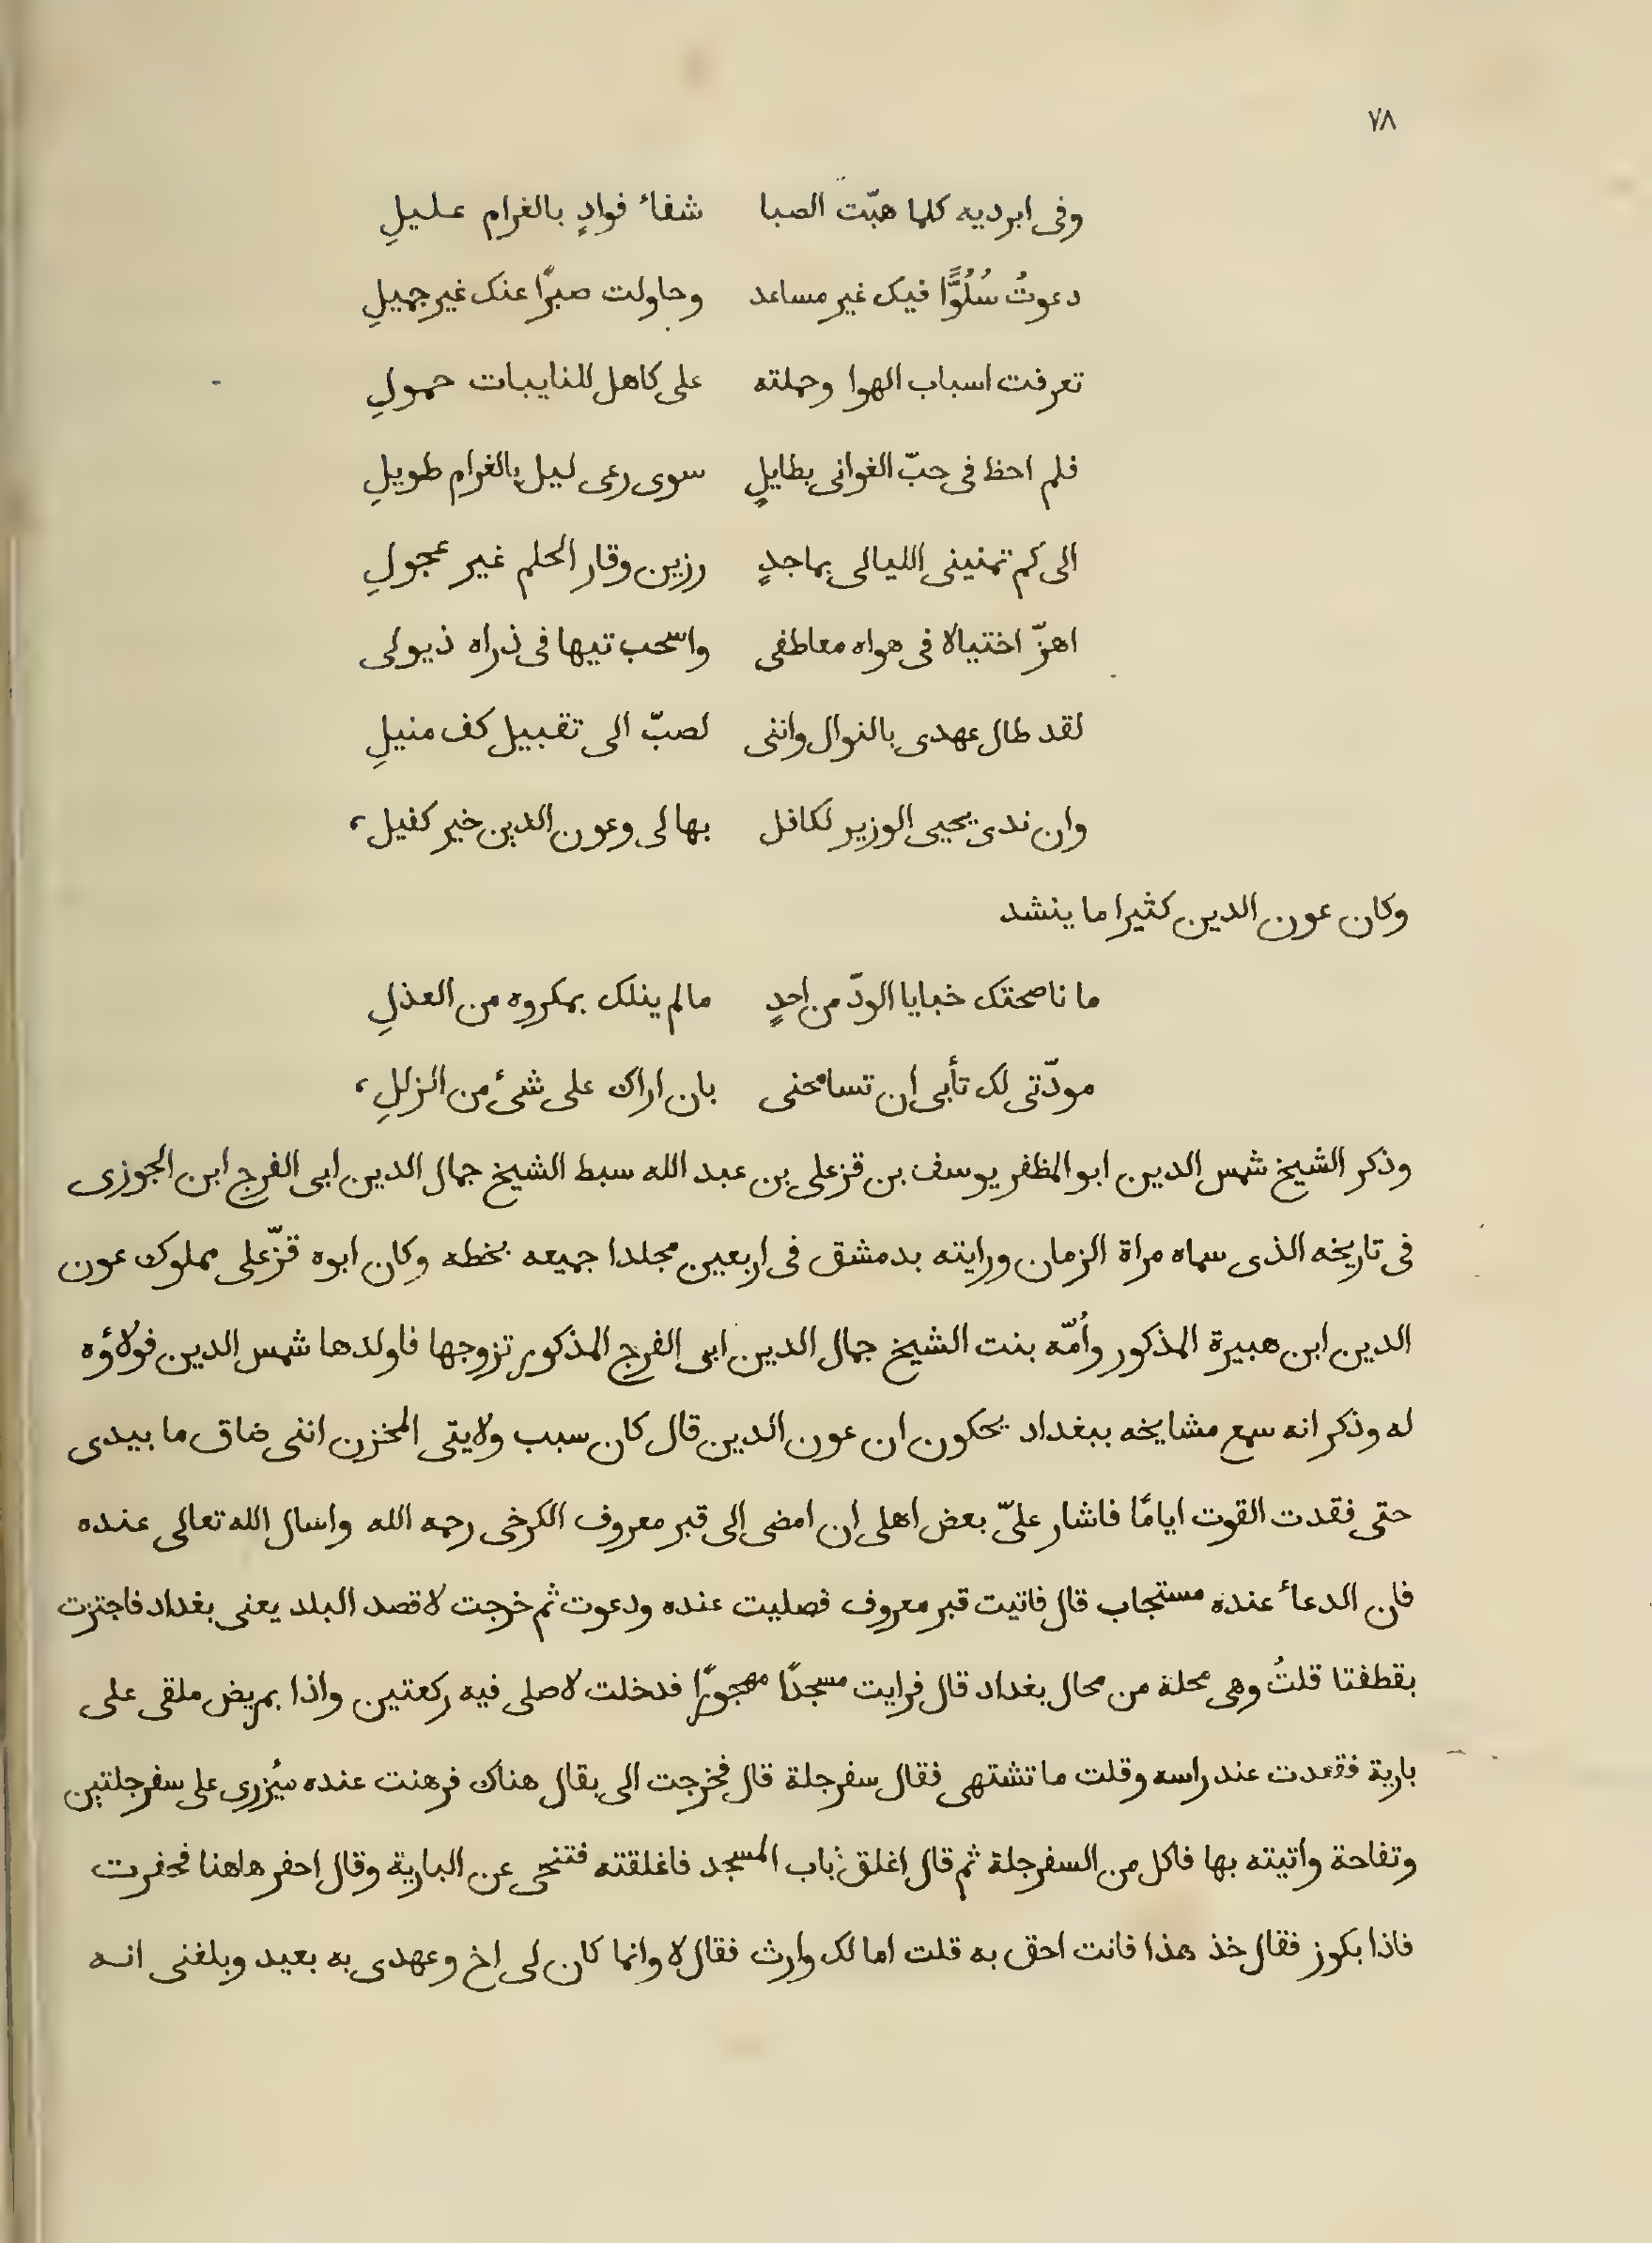 ٧٨
وفى ابرديه كلما هبّت الصبا شفاء فوادٍ بالغرام عليلِ
دعوتُ سُلُوًّا فيك غير مساعد وحاولت صبرًا عنك غير جميلِ
تعرفت اسباب الهوا وحملته على كاهل للنايبات حمولِ
فلم احظ فى حبّ الغوانى بطايلٍ سوى رعى ليل بالغرام طويلِ
الى كم تمنينى الليالى بماجدٍ رزين وقار الحلم غير عجولِ
اهزّ اختيالا فى هواه معاطفى واسحب تيها فى ذراه ذيولى
لقد طال عهدى بالنوال واننى لصبّ الى تقبيل كف منيلِ
وان ندى يحيى الوزير لكافل بها لى وعون الدين خير كفيل،
وكان عون الدين كثيرا ما ينشد
ما ناصحتك خبايا الودّ من احدٍ مالم ينلك بمكروه من العذلِ
مودّتى لك تأبى ان تسامحنى بان اراك على شىء من الزللِ،
وذكر الشيخ شمس الدين ابو المظفر يوسف بن قزعلى بن عبد الله سبط الشيخ جمال الدين ابى الفرج ابن الجوزى
فى تاريخه الذى سماه مراة الزمان ورايته بدمشق فى اربعين مجلدا جميعه بخطه وكان ابوه قزّعلى مملوك عون
الدين ابن هبيرة المذكور وأُمّه بنت الشيخ جمال الدين ابى الفرج المذكور تزوجها فاولدها شمس الدين فولاؤه
له وذكر انه سمع مشايخه ببغداد يحكون ان عون الدين قال كان سبب ولايتى المخزن اننى ضاق ما بيدى
حتى فقدت القوت ايامًا فاشار علىّ بعض اهلى ان امضى الى قبر معروف الكرخى رحمه الله واسال الله تعالى عنده
فان الدعاء عنده مستجاب قال فاتيت قبر معروف فصليت عنده ودعوت ثم خرجت لاقصد البلد يعنى بغداد فاجتزت
بقطفتا قلتُ وهى محلة من محال بغداد قال فرايت مسجدًا مهجورًا فدخلت لاصلى فيه ركعتين واذا بمريض ملقى على
بارية فقعدت عند راسه وقلت ما تشتهى فقال سفرجلة قال فخرجت الى بقال هناك فرهنت عنده ميُزرى على سفرجلتين
وتفاحة واتيته بها فاكل من السفرجلة ثم قال اغلق باب المسجد فاغلقته فتنحى عن البارية وقال احفر هاهنا فحفرت
فاذا بكوز فقال خذ هذا فانت احق به قلت اما لك وارث فقال لا وانما كان لى اخ وعهدى به بعيد وبلغنى انه